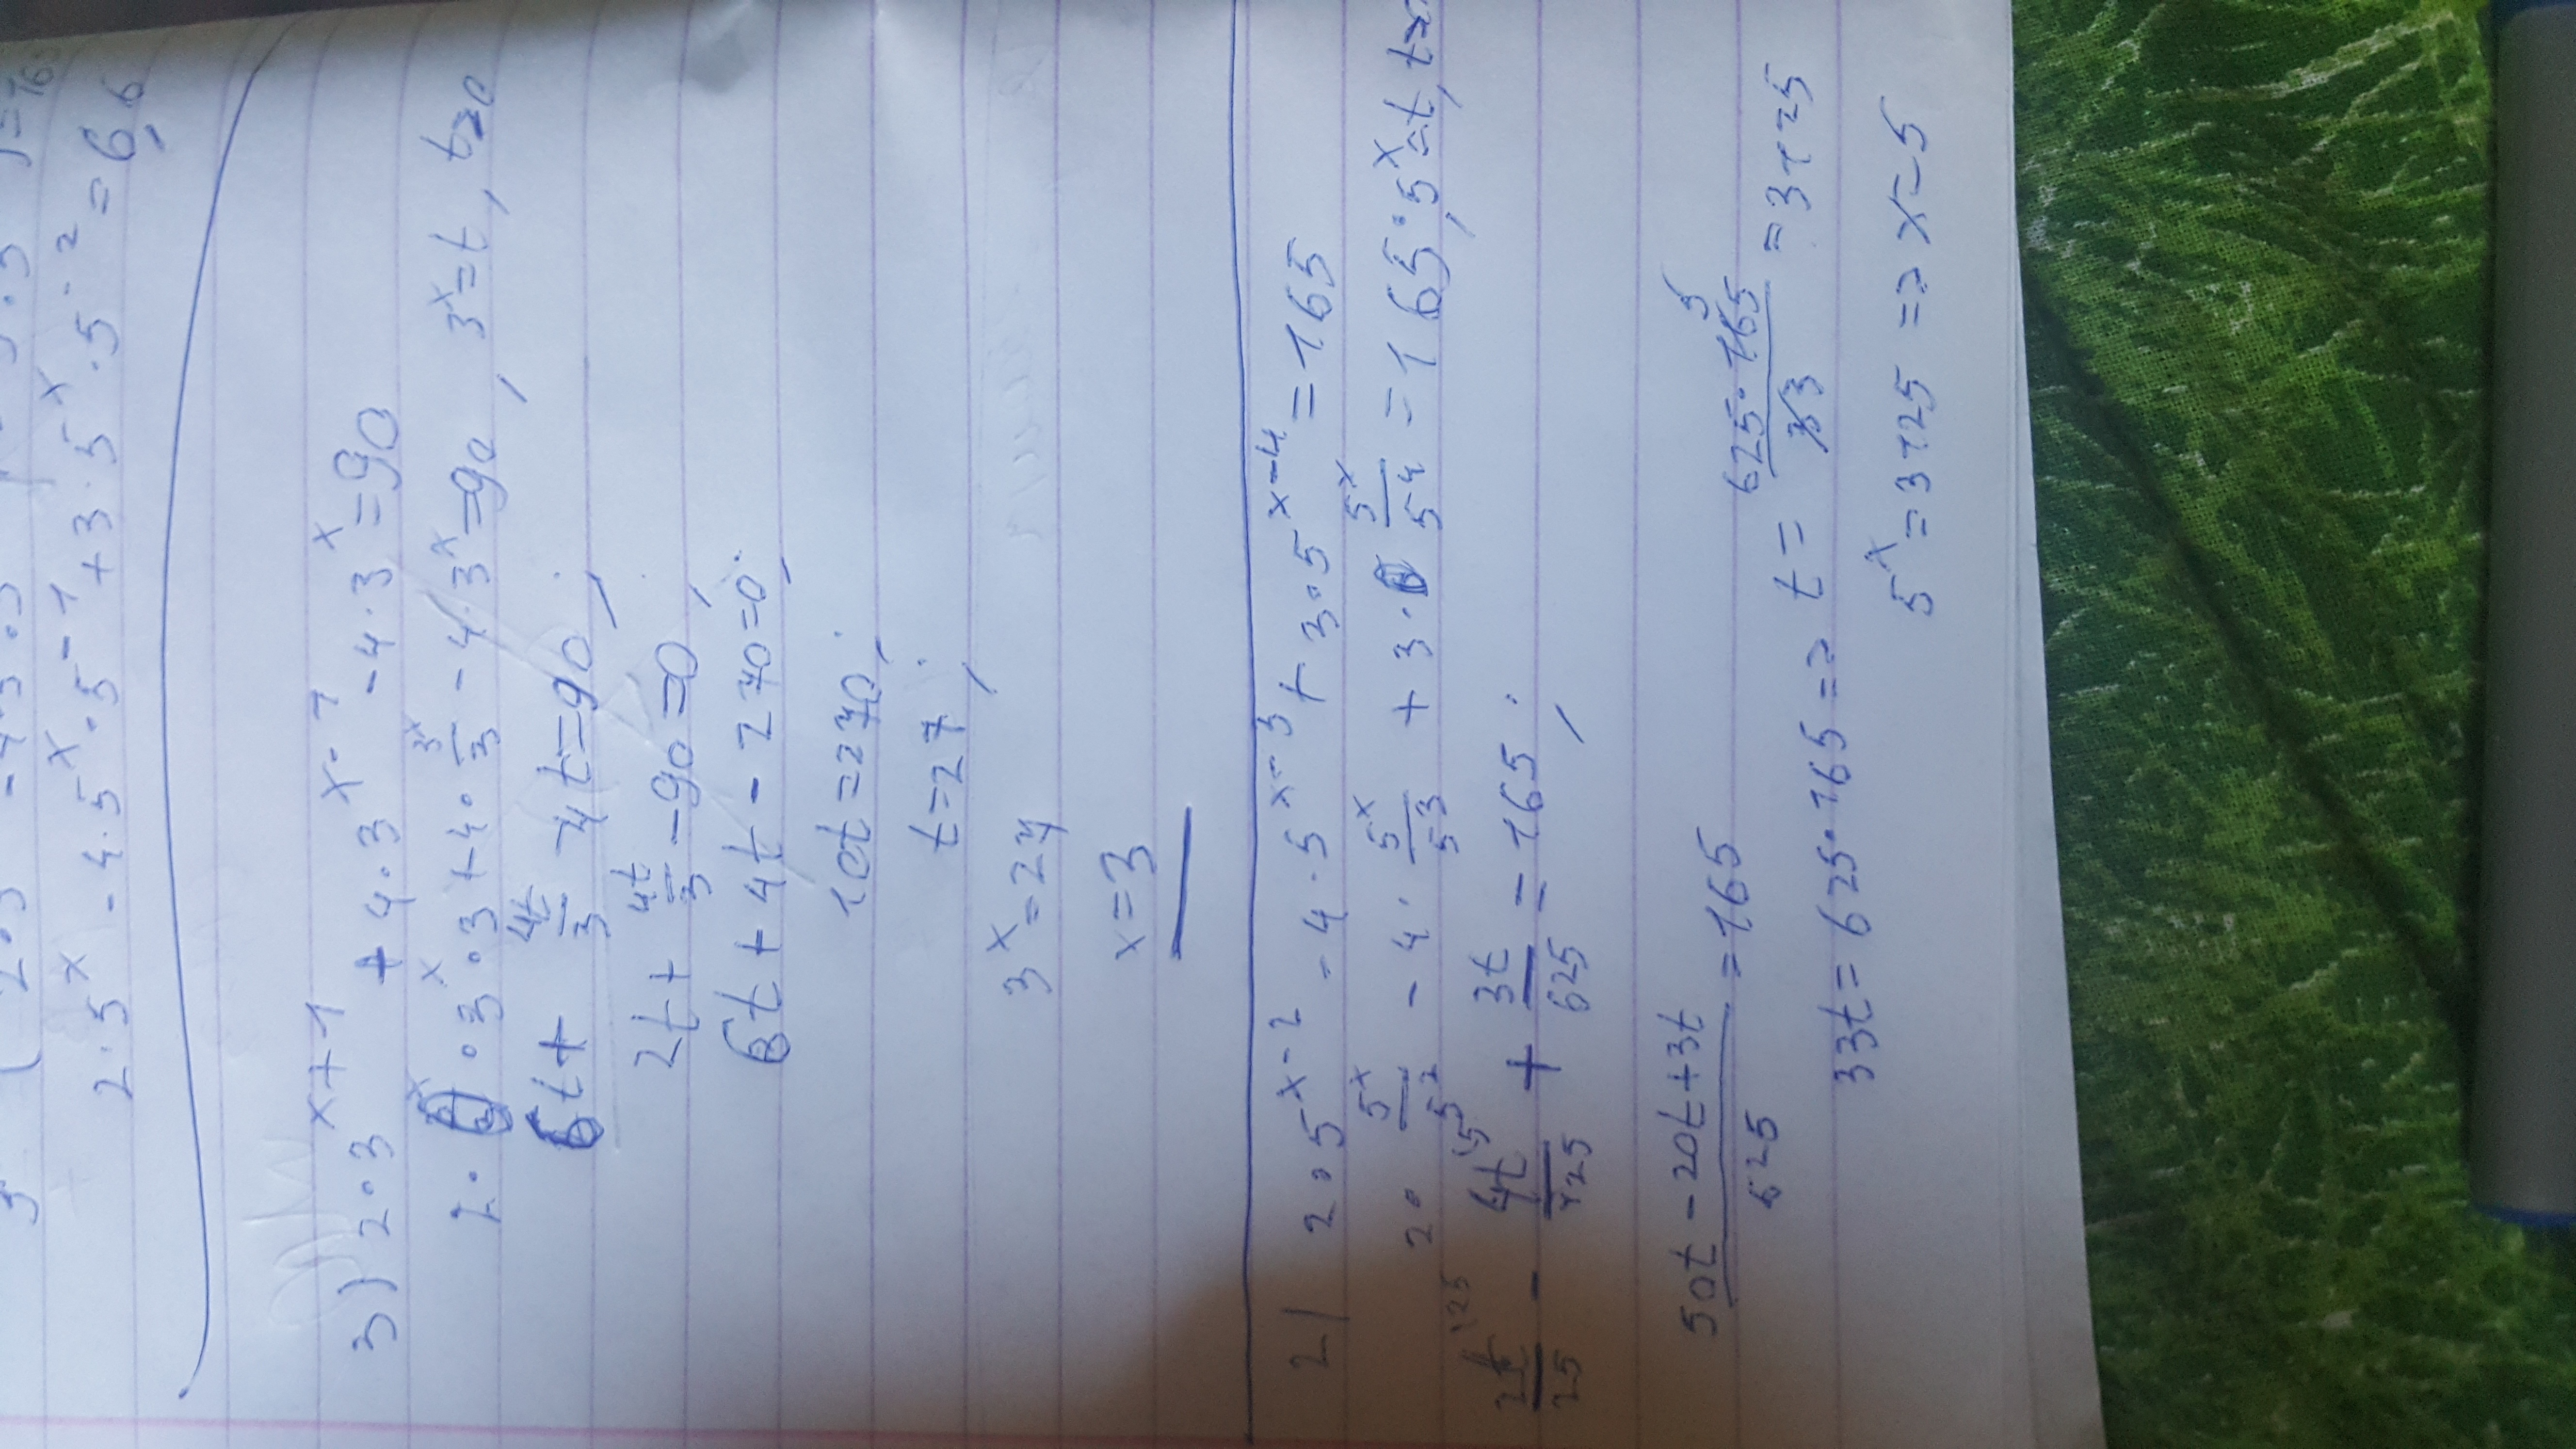 2·5^x - 4·5^x·5^-1 + 3·5^x·5^-2 = 6,6
3) 2·3^(x+1) + 4·3^(x-1) - 4·3^x = 90
2·3^x·3 + 4·3^x/3 - 4·3^x = 90, 3^x = t, t>0
6t + 4t/3 - 4t = 90;
2t + 4t/3 - 90 = 0;
6t + 4t - 270 = 0;
10t = 270;
t = 27;
3^x = 27
x = 3
2) 2·5^(x-2) - 4·5^(x-3) + 3·5^(x-4) = 165
2·5^x/5^2 - 4·5^x/5^3 + 3·5^x/5^4 = 165; 5^x = t, t>
2t/25 - 4t/125 + 3t/625 = 165;
(50t - 20t + 3t)/625 = 165
33t = 625·165 => t = 625·165/33 = 3125
5^x = 3125 => x = 5